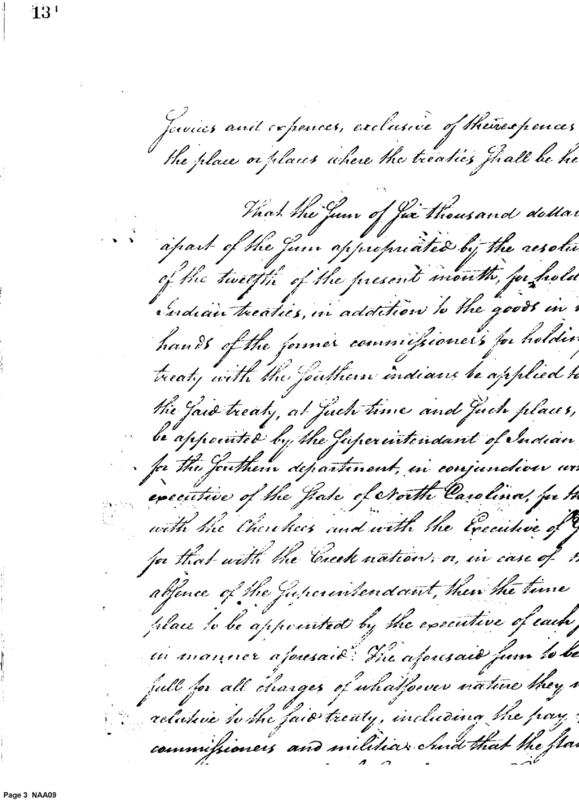 13
Services and expences, exclusive of their expences
the place or places where the treaties shall be he
That the sum of six thousand dollar
apart of the sum appropriated by the resolu
of the twelfth of the present month, for hold
Indian treaties, in addition to the goods in
hands of the former commissioners for holdin
treaty with the Southern indians be applied to
the said treaty, at such time and such places,
be appointed by the Superintendant of Indian
for the Southern department, in conjunction
executive of the State of North Carolina, for
with the Cherokees and with the Executive of G
for that with the Creek nation, or, in case of
absence of the Superintendant, then the time
place to be appointed by the executive of each
in manner aforesaid. The aforesaid sum to be
full for all charges of whatsoever nature they
relative to the said treaty, including the pay
commissioners and militia. And that the sta
Page 3 NAA09